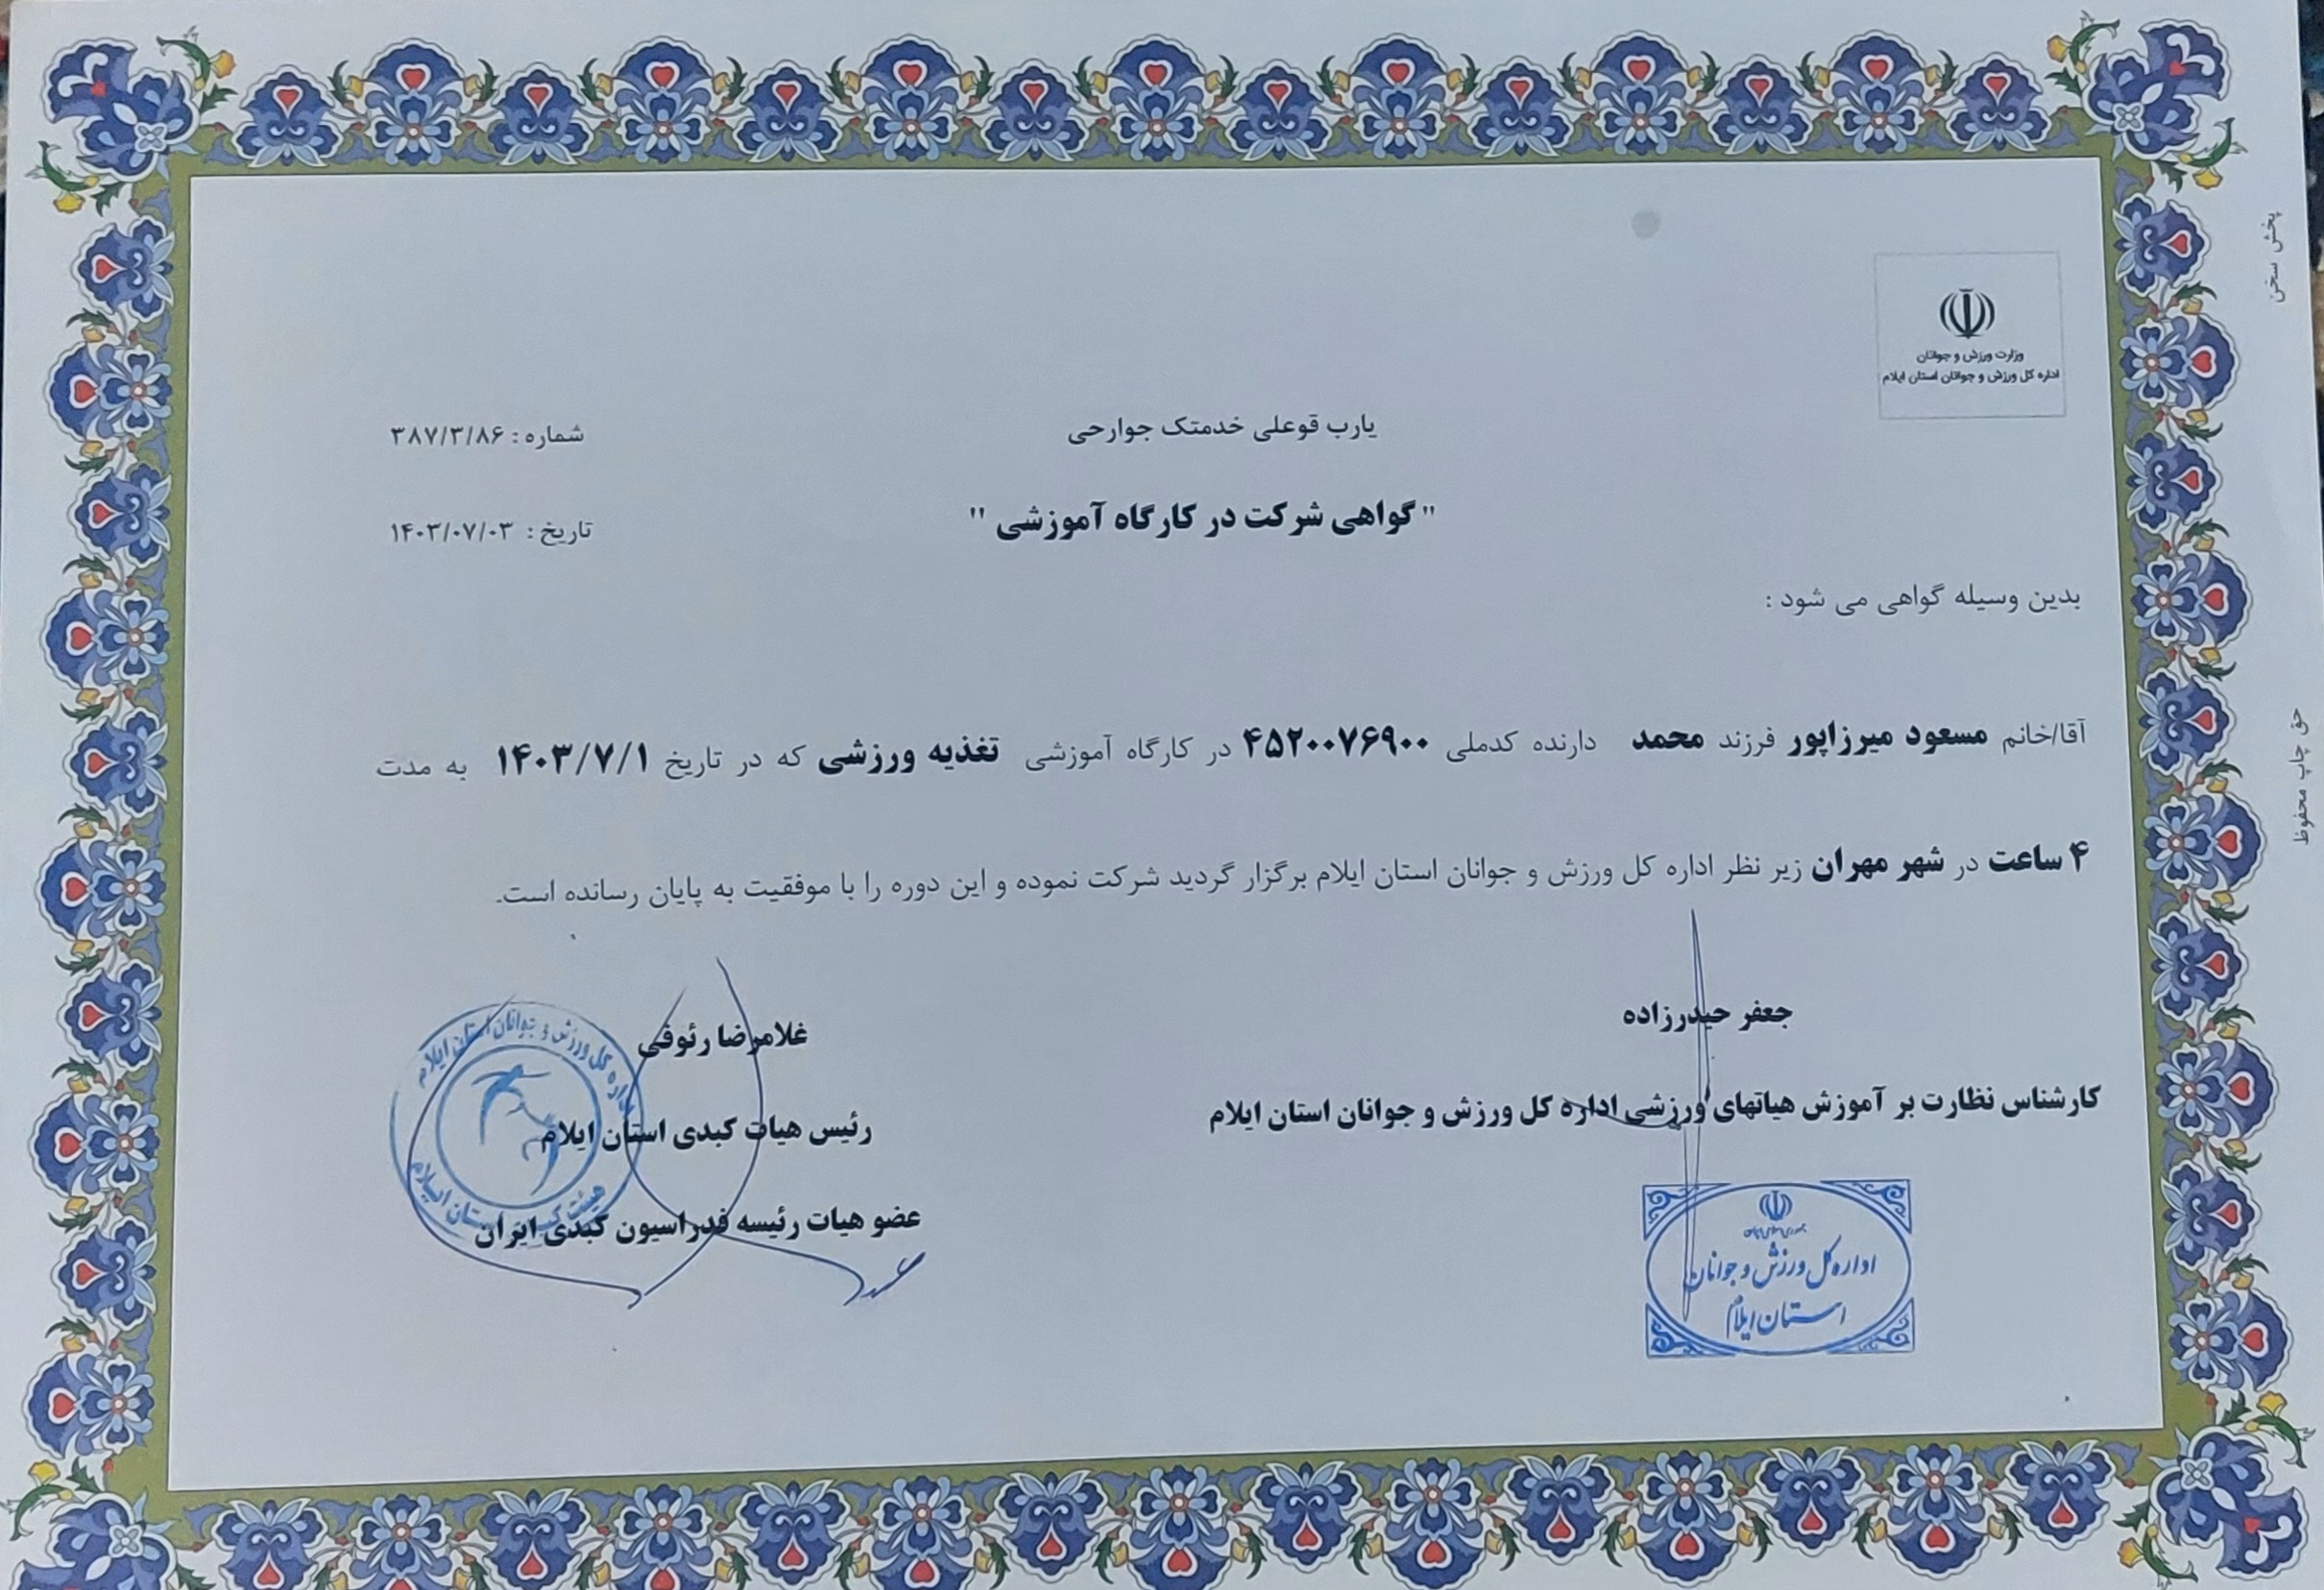 وزارت ورزش و جوانان
اداره کل ورزش و جوانان استان ایلام
یارب قوعلی خدمتک جوارحی
شماره : ۳۸۷/۳/۸۶
" گواهی شرکت در کارگاه آموزشی "
تاریخ : ۱۴۰۳/۰۷/۰۳
بدین وسیله گواهی می شود :
آقا/خانم مسعود میرزاپور فرزند محمد دارنده کدملی ۴۵۲۰۰۷۶۹۰۰ در کارگاه آموزشی تغذیه ورزشی که در تاریخ ۱۴۰۳/۷/۱ به مدت
۴ ساعت در شهر مهران زیر نظر اداره کل ورزش و جوانان استان ایلام برگزار گردید شرکت نموده و این دوره را با موفقیت به پایان رسانده است.
جعفر حیدرزاده
کارشناس نظارت بر آموزش هیاتهای ورزشی اداره کل ورزش و جوانان استان ایلام
جمهوری اسلامی ایران
اداره کل ورزش و جوانان
استان ایلام
غلامرضا رئوفی
رئیس هیات کبدی استان ایلام
عضو هیات رئیسه فدراسیون کبدی ایران
اداره کل ورزش و جوانان استان ایلام
هیئت کبدی استان ایلام
پخش سخن
حق چاپ محفوظ